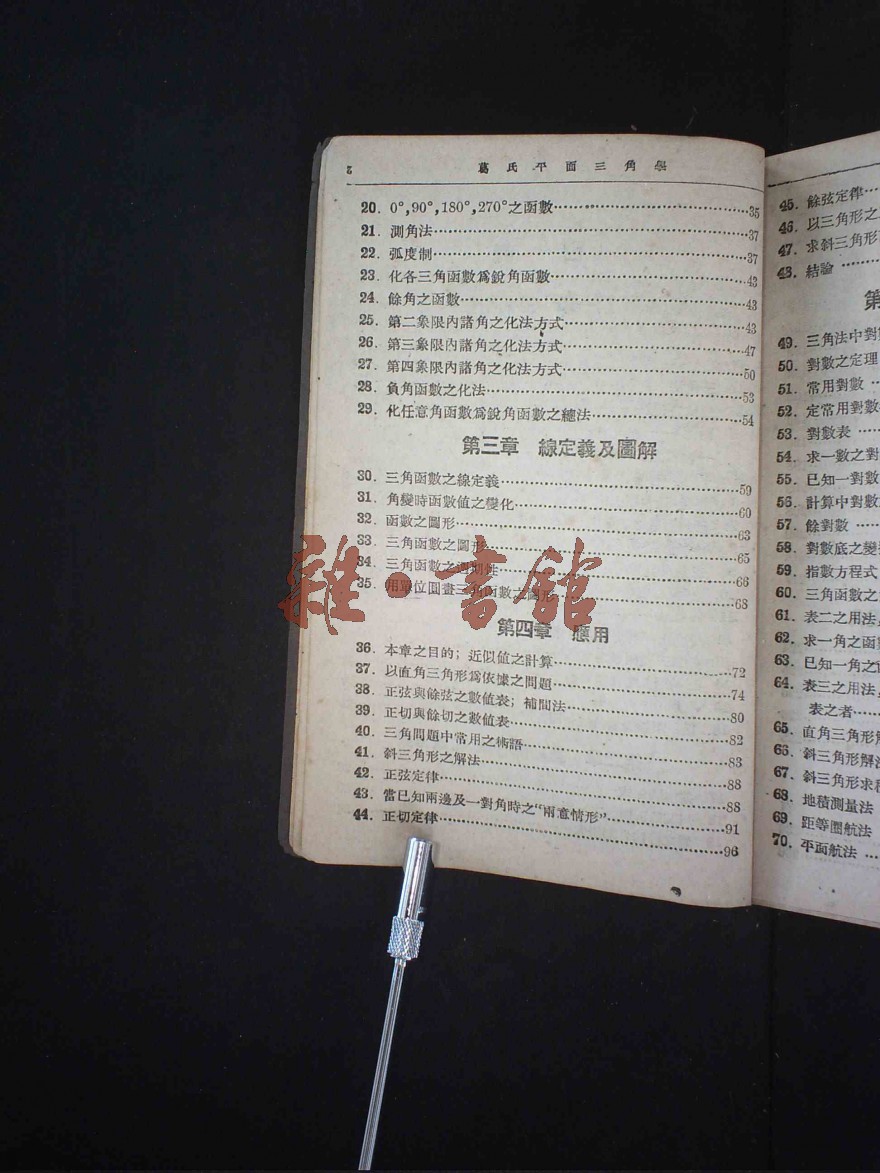 2 葛氏平面三角學
20. 0°,90°,180°,270°之函數……35
21. 測角法……37
22. 弧度制……37
23. 化各三角函數爲銳角函數……43
24. 餘角之函數……43
25. 第二象限內諸角之化法方式……43
26. 第三象限內諸角之化法方式……47
27. 第四象限內諸角之化法方式……50
28. 負角函數之化法……53
29. 化任意角函數爲銳角函數之總法……54
第三章 線定義及圖解
30. 三角函數之線定義……59
31. 角變時函數值之變化……60
32. 函數之圖形……63
33. 三角函數之圖形……65
34. 三角函數之週期性……66
35. 用單位圓畫三角函數之圖形……68
第四章 應用
36. 本章之目的;近似值之計算……72
37. 以直角三角形爲依據之問題……74
38. 正弦與餘弦之數值表;補間法……80
39. 正切與餘切之數值表……82
40. 三角問題中常用之術語……83
41. 斜三角形之解法……88
42. 正弦定律……88
43. 當已知兩邊及一對角時之“兩意情形”……91
44. 正切定律……96
雜·書館
45. 餘弦定律…
46. 以三角形之
47. 求斜三角形
48. 結論…
第
49. 三角法中對
50. 對數之定理
51. 常用對數…
52. 定常用對數
53. 對數表…
54. 求一數之對
55. 已知一對數
56. 計算中對數
57. 餘對數…
58. 對數底之變
59. 指數方程式
60. 三角函數之
61. 表二之用法
62. 求一角之函
63. 已知一角之
64. 表三之用法
表之者…
65. 直角三角形
66. 斜三角形解
67. 斜三角形求
68. 地積測量法
69. 距等圈航法
70. 平面航法…